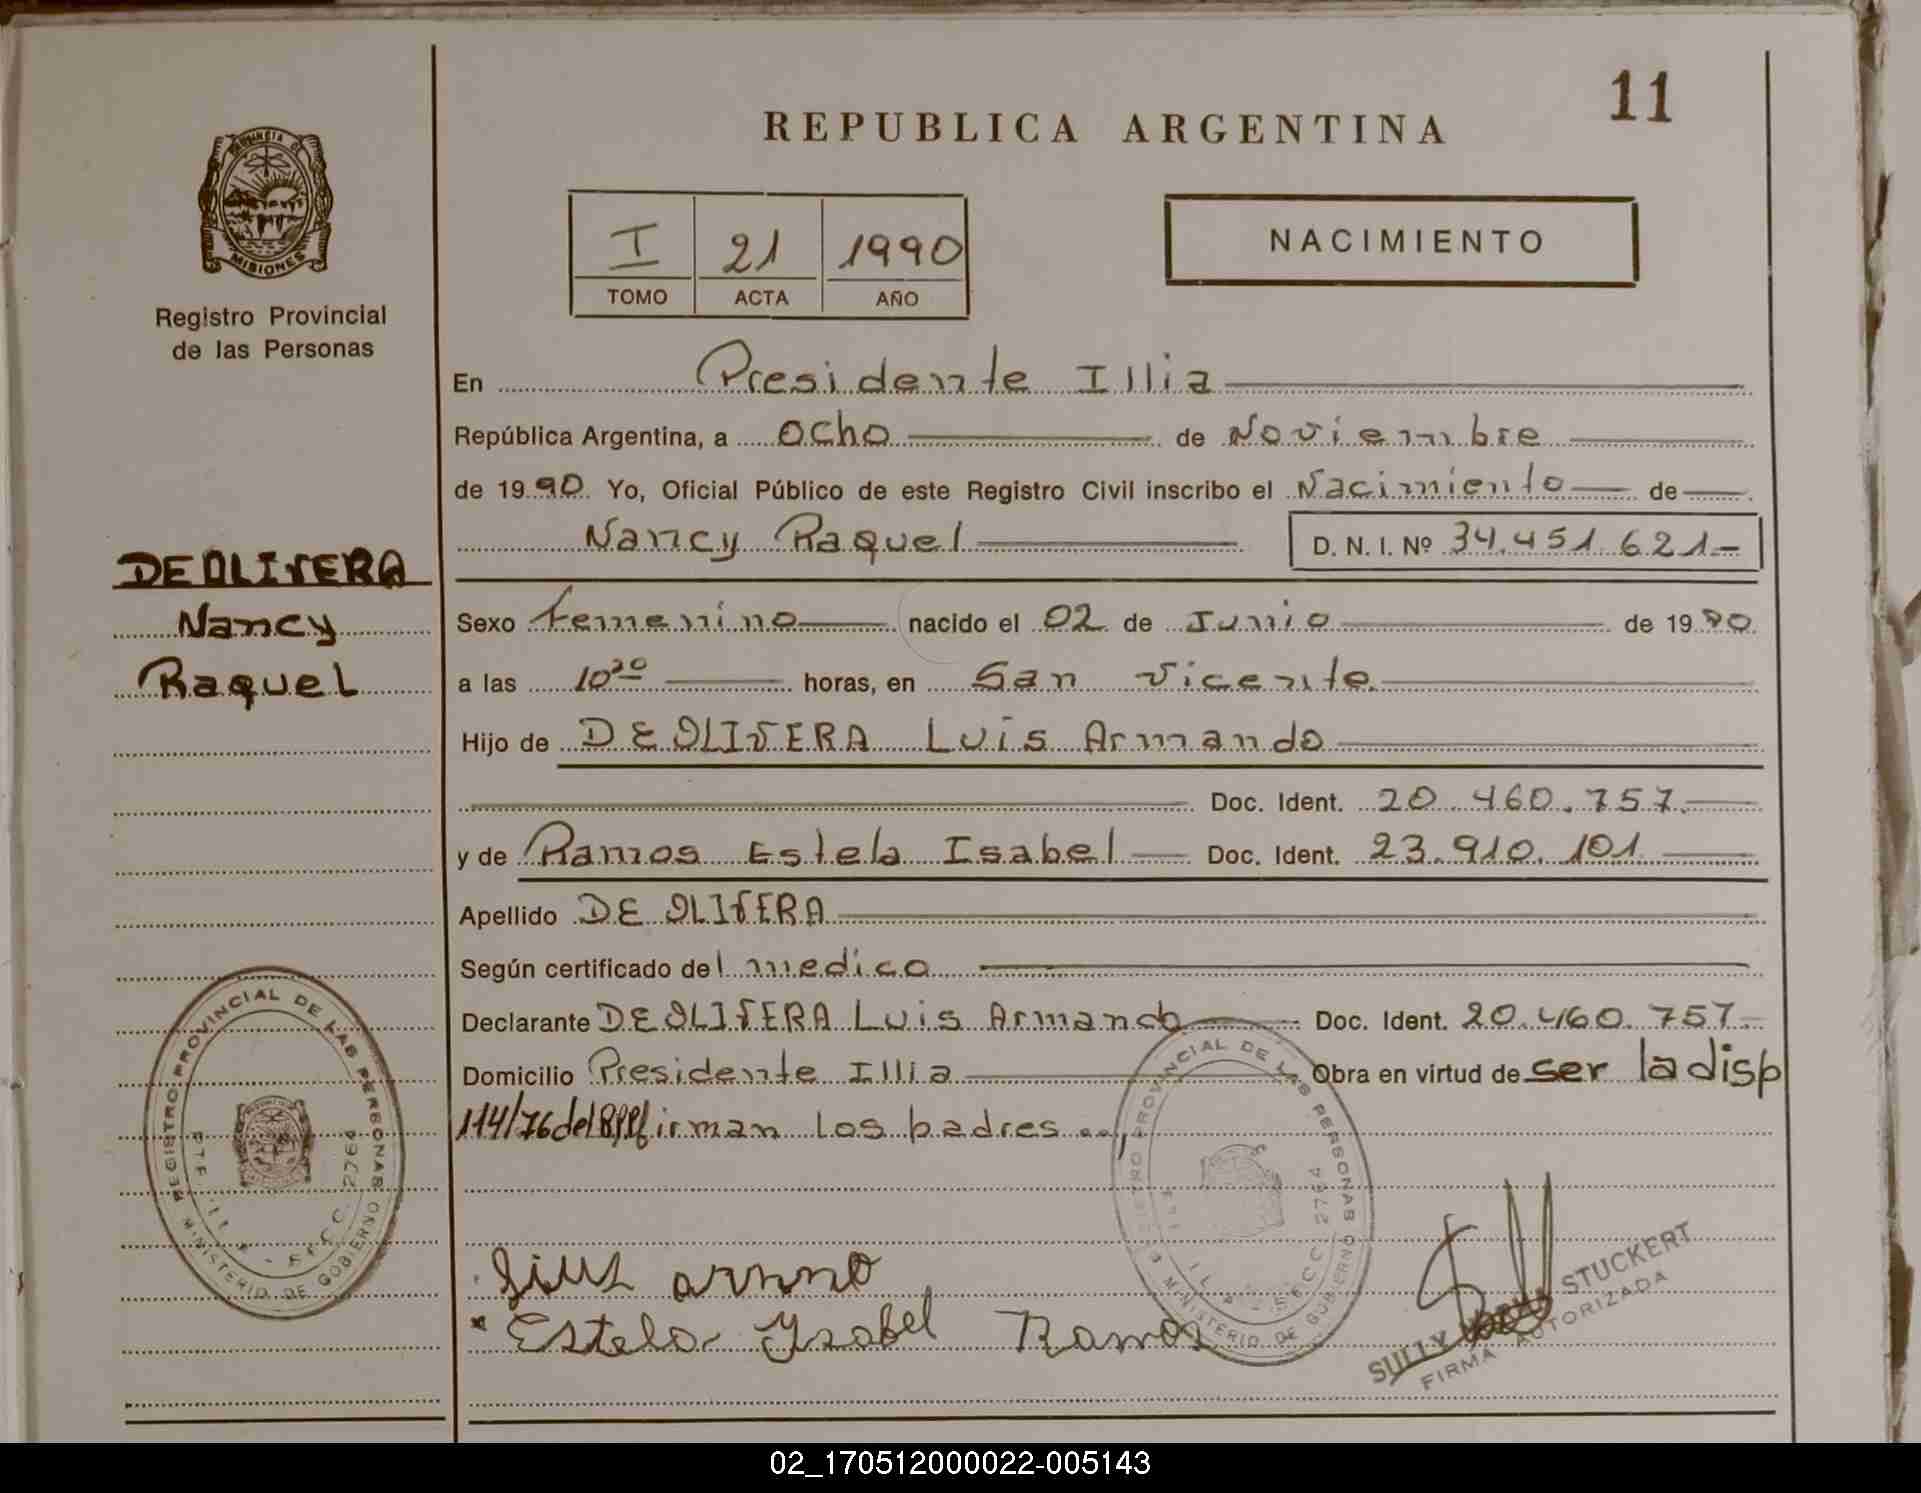 11
REPUBLICA ARGENTINA
PROVINCIA DE
MISIONES
Registro Provincial
de las Personas
I 21 1990
TOMO ACTA AÑO
NACIMIENTO
En Presidente Illia
República Argentina, a ocho de Noviembre
de 1990. Yo, Oficial Público de este Registro Civil inscribo el Nacimiento de
Nancy Raquel D. N. I. Nº 34.451.621-
DEOLIVERA
Nancy
Raquel
Sexo femenino nacido el 02 de Junio de 1990
a las 10 30 horas, en San Vicente
Hijo de DE OLIVERA Luis Armando
Doc. Ident. 20.460.757.
y de Ramos Estela Isabel Doc. Ident. 23.910.101
Apellido DE OLIVERA
Según certificado del medico
Declarante DE OLIVERA Luis Armando Doc. Ident. 20.460.757.
Domicilio Presidente Illia Obra en virtud de ser la disp
114/76 del RPP firman los padres
REGISTRO PROVINCIAL DE LAS PERSONAS
MINISTERIO DE GOBIERNO
PTE. ILLIA - SECC. 2764
REGISTRO PROVINCIAL DE LAS PERSONAS
MINISTERIO DE GOBIERNO
ILLIA - SECC. 2764
Estela Ysabel Ramos
SULLY STUCKERT
FIRMA AUTORIZADA
02_170512000022-005143